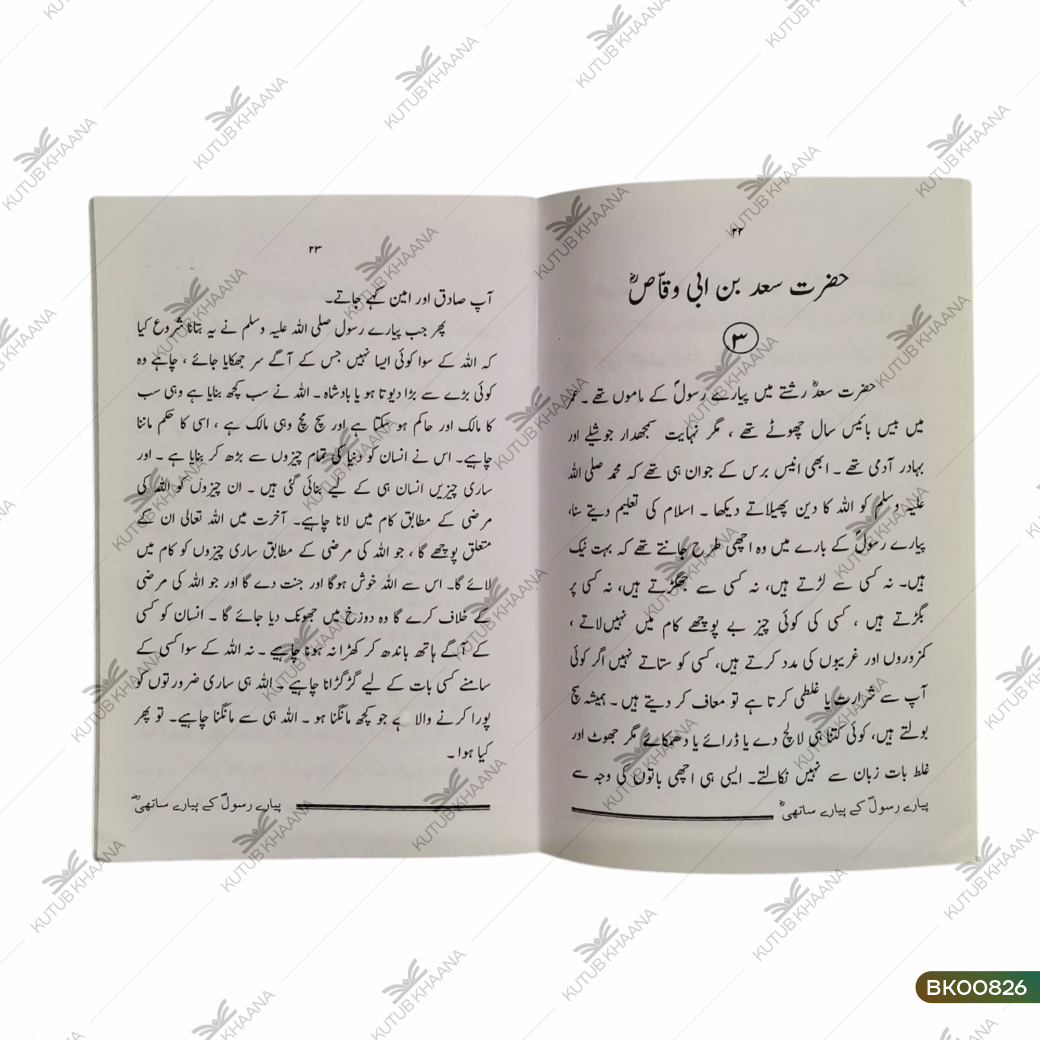 ۲۲
حضرت سعد بن ابی وقاصؓ
۳
حضرت سعدؓ رشتے میں پیارے رسولؐ کے ماموں تھے۔ عمر
میں بیس بائیس سال چھوٹے تھے ، مگر نہایت سمجھدار جوشیلے اور
بہادر آدمی تھے ۔ ابھی انیس برس کے جوان ہی تھے کہ محمد صلی اللہ
علیہ وسلم کو اللہ کا دین پھیلاتے دیکھا ۔ اسلام کی تعلیم دیتے سنا،
پیارے رسولؐ کے بارے میں وہ اچھی طرح جانتے تھے کہ بہت نیک
ہیں۔ نہ کسی سے لڑتے ہیں، نہ کسی سے جھگڑتے ہیں، نہ کسی پر
بگڑتے ہیں ، کسی کی کوئی چیز بے پوچھے کام میں نہیں لاتے ،
کمزوروں اور غریبوں کی مدد کرتے ہیں، کسی کو ستاتے نہیں اگر کوئی
آپ سے شرارت یا غلطی کرتا ہے تو معاف کر دیتے ہیں ۔ ہمیشہ سچ
بولتے ہیں، کوئی کتنا ہی لالچ دے یا ڈرائے یا دھمکائے مگر جھوٹ اور
غلط بات زبان سے نہیں نکالتے۔ ایسی ہی اچھی باتوں کی وجہ سے
پیارے رسولؐ کے پیارے ساتھیؓ
۲۳
آپ صادق اور امین کہے جاتے۔
پھر جب پیارے رسول صلی اللہ علیہ وسلم نے یہ بتانا شروع کیا
کہ اللہ کے سوا کوئی ایسا نہیں جس کے آگے سر جھکایا جائے ، چاہے وہ
کوئی بڑے سے بڑا دیوتا ہو یا بادشاہ ۔ اللہ نے سب کچھ بنایا ہے وہی سب
کا مالک اور حاکم ہو سکتا ہے اور سچ مچ وہی مالک ہے ، اسی کا حکم ماننا
چاہیے۔ اس نے انسان کو دنیا کی تمام چیزوں سے بڑھ کر بنایا ہے ۔ اور
ساری چیزیں انسان ہی کے لیے بنائی گئی ہیں ۔ ان چیزوں کو اللہ کی
مرضی کے مطابق کام میں لانا چاہیے۔ آخرت میں اللہ تعالی ان کے
متعلق پوچھے گا ، جو اللہ کی مرضی کے مطابق ساری چیزوں کو کام میں
لائے گا۔ اس سے اللہ خوش ہوگا اور جنت دے گا اور جو اللہ کی مرضی
کے خلاف کرے گا وہ دوزخ میں جھونک دیا جائے گا ۔ انسان کو کسی
کے آگے ہاتھ باندھ کر کھڑا نہ ہونا چاہیے ۔ نہ اللہ کے سوا کسی کے
سامنے کسی بات کے لیے گڑگڑانا چاہیے ۔ اللہ ہی ساری ضرورتوں کو
پورا کرنے والا ہے جو کچھ مانگنا ہو ۔ اللہ ہی سے مانگنا چاہیے۔ تو پھر
کیا ہوا ۔
پیارے رسولؐ کے پیارے ساتھیؓ
KUTUB KHAANA
BK00826